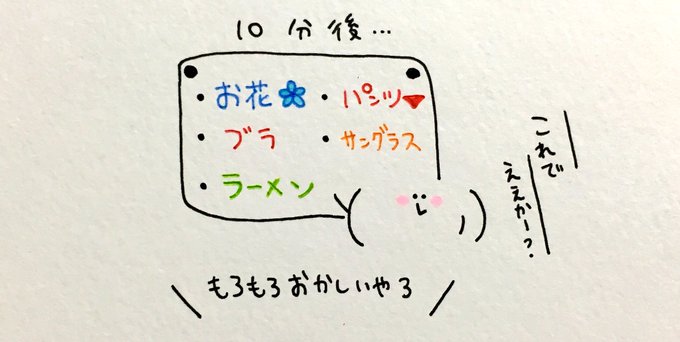 10分後…
・お花 ・パンツ
・ブラ ・サングラス
・ラーメン
これで
ええかー?
\ もろもろおかしいやろ /